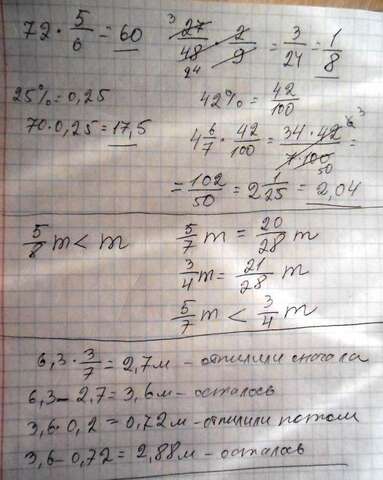 72 · 5/6 = 60
27/48 · 2/9 = 3/24 = 1/8
3
24
25% = 0,25
70 · 0,25 = 17,5
42% = 42/100
4 6/7 · 42/100 = 34 · 42/7 · 100 =
6 3
50
= 102/50 = 2 1/25 = 2,04
5/8 m < m
5/7 m = 20/28 m
3/4 m = 21/28 m
5/7 m < 3/4 m
6,3 · 3/7 = 2,7м – отпилили сначала
6,3 – 2,7 = 3,6м – осталось
3,6 · 0,2 = 0,72м – отпилили потом
3,6 – 0,72 = 2,88м – осталось